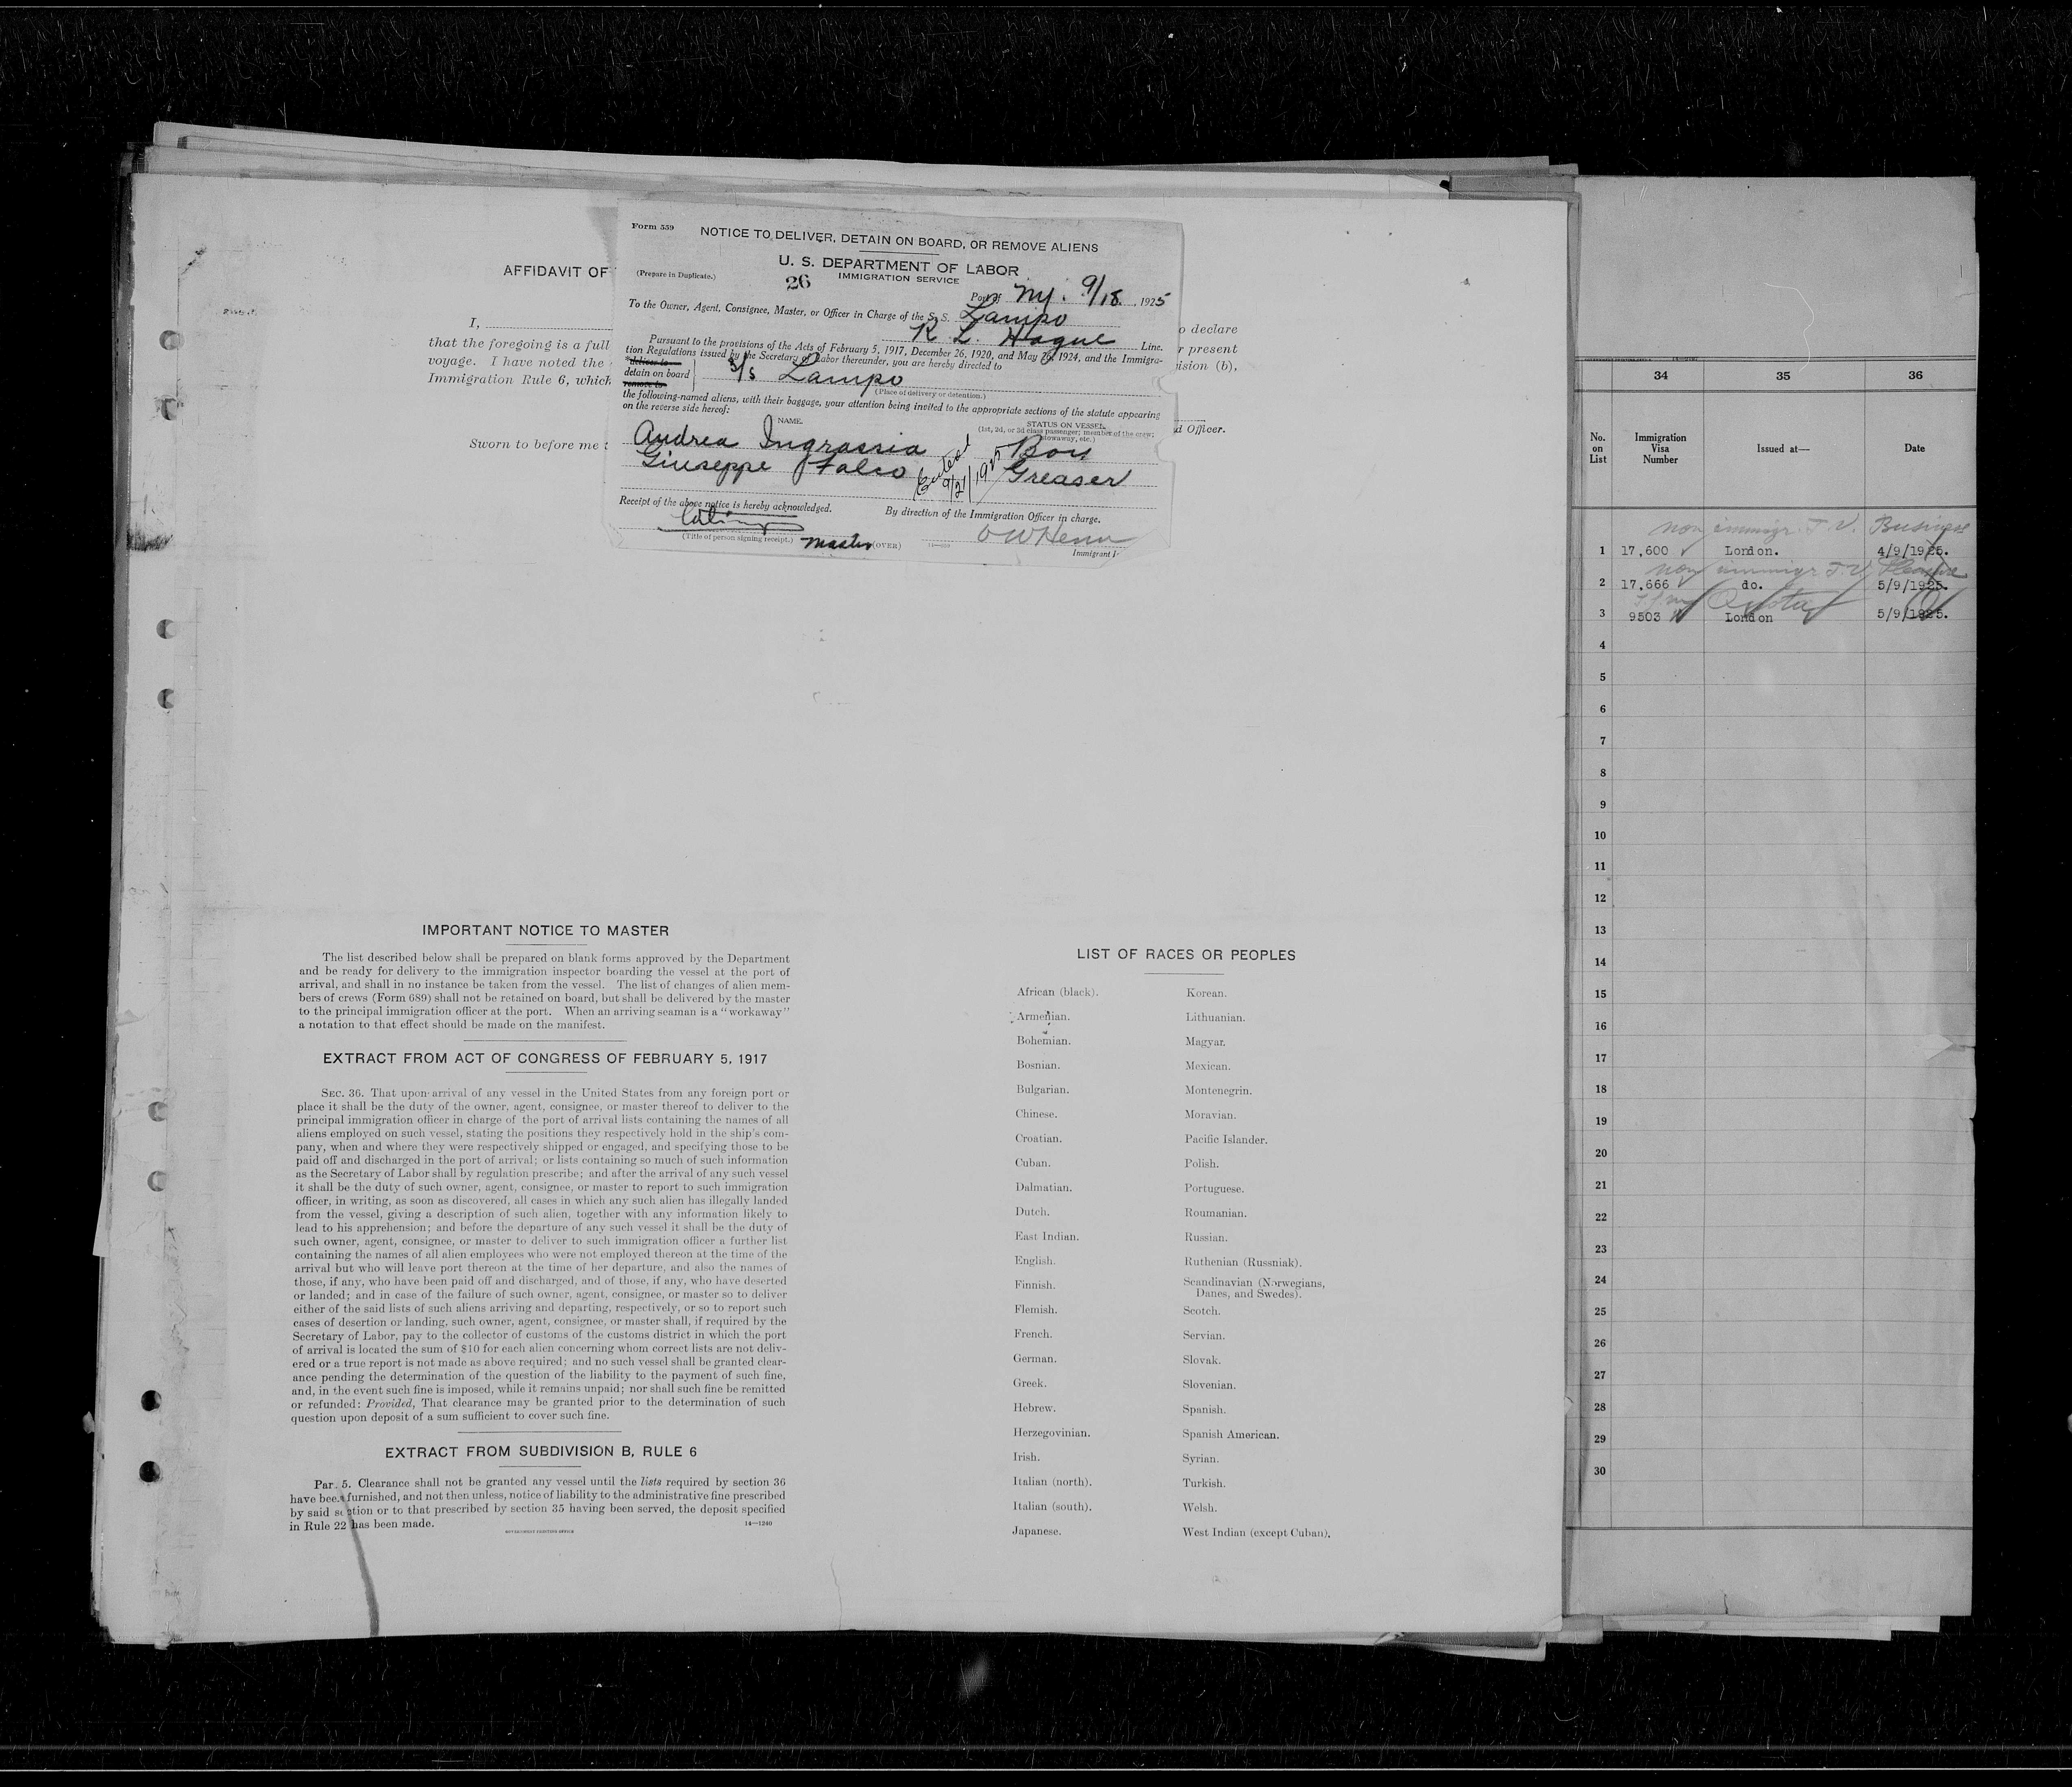 Form 559
NOTICE TO DELIVER, DETAIN ON BOARD, OR REMOVE ALIENS
U. S. DEPARTMENT OF LABOR
(Prepare in Duplicate.)
26
IMMIGRATION SERVICE
Port of NY. 9/18, 1925
To the Owner, Agent, Consignee, Master, or Officer in Charge of the S. S. Lampo
R. L. Hague Line.
Pursuant to the provisions of the Acts of February 5, 1917, December 26, 1920, and May 26, 1924, and the Immigra-
tion Regulations issued by the Secretary of Labor thereunder, you are hereby directed to
*deliver to
detain on board
remove to
S/S Lampo
(Place of delivery or detention.)
the following-named aliens, with their baggage, your attention being invited to the appropriate sections of the statute appearing
on the reverse side hereof:
NAME.
STATUS ON VESSEL.
(1st, 2d, or 3d class passenger; member of the crew;
stowaway, etc.)
Andrea Ingrassia Boy
Giuseppe Falco Greaser
9/21/1925
Receipt of the above notice is hereby acknowledged.
By direction of the Immigration Officer in charge.
(Title of person signing receipt.) Master (OVER)
Immigrant I
AFFIDAVIT OF
I,
o declare
that the foregoing is a full
r present
voyage. I have noted the
ision (b),
Immigration Rule 6, which
d Officer.
Sworn to before me t
IMPORTANT NOTICE TO MASTER
The list described below shall be prepared on blank forms approved by the Department
and be ready for delivery to the immigration inspector boarding the vessel at the port of
arrival, and shall in no instance be taken from the vessel. The list of changes of alien mem-
bers of crews (Form 689) shall not be retained on board, but shall be delivered by the master
to the principal immigration officer at the port. When an arriving seaman is a "workaway"
a notation to that effect should be made on the manifest.
EXTRACT FROM ACT OF CONGRESS OF FEBRUARY 5, 1917
SEC. 36. That upon arrival of any vessel in the United States from any foreign port or
place it shall be the duty of the owner, agent, consignee, or master thereof to deliver to the
principal immigration officer in charge of the port of arrival lists containing the names of all
aliens employed on such vessel, stating the positions they respectively hold in the ship's com-
pany, when and where they were respectively shipped or engaged, and specifying those to be
paid off and discharged in the port of arrival; or lists containing so much of such information
as the Secretary of Labor shall by regulation prescribe; and after the arrival of any such vessel
it shall be the duty of such owner, agent, consignee, or master to report to such immigration
officer, in writing, as soon as discovered, all cases in which any such alien has illegally landed
from the vessel, giving a description of such alien, together with any information likely to
lead to his apprehension; and before the departure of any such vessel it shall be the duty of
such owner, agent, consignee, or master to deliver to such immigration officer a further list
containing the names of all alien employees who were not employed thereon at the time of the
arrival but who will leave port thereon at the time of her departure, and also the names of
those, if any, who have been paid off and discharged, and of those, if any, who have deserted
or landed; and in case of the failure of such owner, agent, consignee, or master so to deliver
either of the said lists of such aliens arriving and departing, respectively, or so to report such
cases of desertion or landing, such owner, agent, consignee, or master shall, if required by the
Secretary of Labor, pay to the collector of customs of the customs district in which the port
of arrival is located the sum of $10 for each alien concerning whom correct lists are not deliv-
ered or a true report is not made as above required; and no such vessel shall be granted clear-
ance pending the determination of the question of the liability to the payment of such fine,
and, in the event such fine is imposed, while it remains unpaid; nor shall such fine be remitted
or refunded: Provided, That clearance may be granted prior to the determination of such
question upon deposit of a sum sufficient to cover such fine.
EXTRACT FROM SUBDIVISION B, RULE 6
Par. 5. Clearance shall not be granted any vessel until the lists required by section 36
have been furnished, and not then unless, notice of liability to the administrative fine prescribed
by said section or to that prescribed by section 35 having been served, the deposit specified
in Rule 22 has been made.
GOVERNMENT PRINTING OFFICE
14—1240
LIST OF RACES OR PEOPLES
African (black). Korean.
Armenian. Lithuanian.
Bohemian. Magyar.
Bosnian. Mexican.
Bulgarian. Montenegrin.
Chinese. Moravian.
Croatian. Pacific Islander.
Cuban. Polish.
Dalmatian. Portuguese.
Dutch. Roumanian.
East Indian. Russian.
English. Ruthenian (Russniak).
Finnish. Scandinavian (Norwegians,
Danes, and Swedes).
Flemish. Scotch.
French. Servian.
German. Slovak.
Greek. Slovenian.
Hebrew. Spanish.
Herzegovinian. Spanish American.
Irish. Syrian.
Italian (north). Turkish.
Italian (south). Welsh.
Japanese. West Indian (except Cuban).
34 35 36
No. on List Immigration Visa Number Issued at— Date
non immigr. T. V. Business
1 17,600 London. 4/9/1925.
non immigr T.V. Pleasure
2 17,666 do. 5/9/1925.
Quota
3 9503 London 5/9/1925.
4
5
6
7
8
9
10
11
12
13
14
15
16
17
18
19
20
21
22
23
24
25
26
27
28
29
30